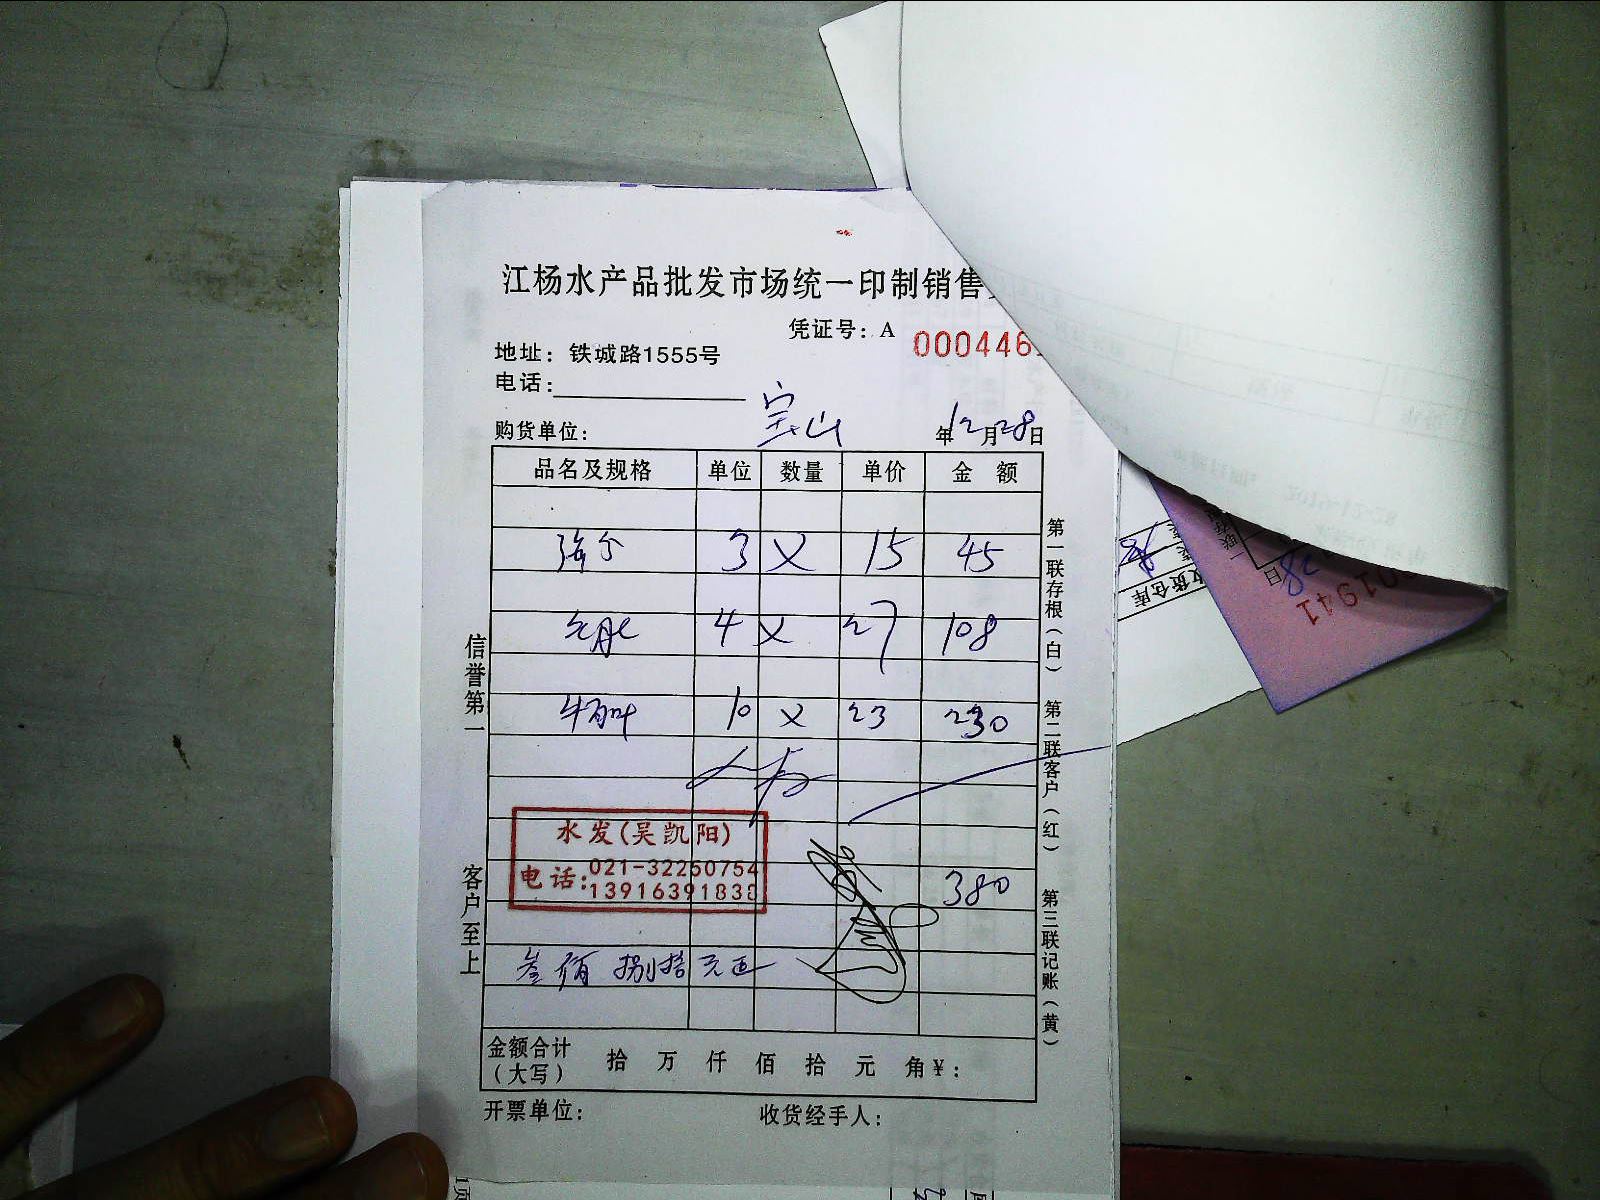 江杨水产品批发市场统一印制销售
凭证号：A 000446
地址：铁城路1555号
电话：
购货单位： 宝山 年12月28日
品名及规格 单位 数量 单价 金 额
3 X 15 45
4 X 27 108
牛百叶 10 X 23 230
水发(吴凯阳)
电话：021-32250754
13916391838
380
叁佰捌拾元正
金额合计（大写） 拾 万 仟 佰 拾 元 角 ¥：
开票单位： 收货经手人：
信誉第一
客户至上
第一联存根（白）
第二联客户（红）
第三联记账（黄）
收货仓库
日
28
01941